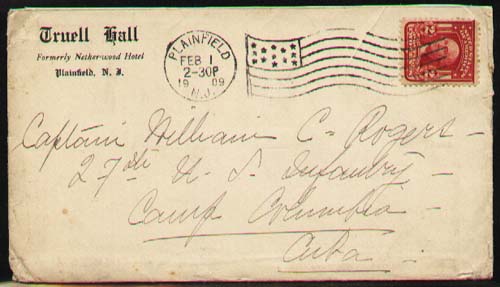 Truell Hall
Formerly Netherwood Hotel
Plainfield, N. J.
PLAINFIELD
FEB 1
2-30P
1909
N.J.
Captain William C. Rogers –
27th U. S. Infantry –
Camp Columbia –
Cuba –